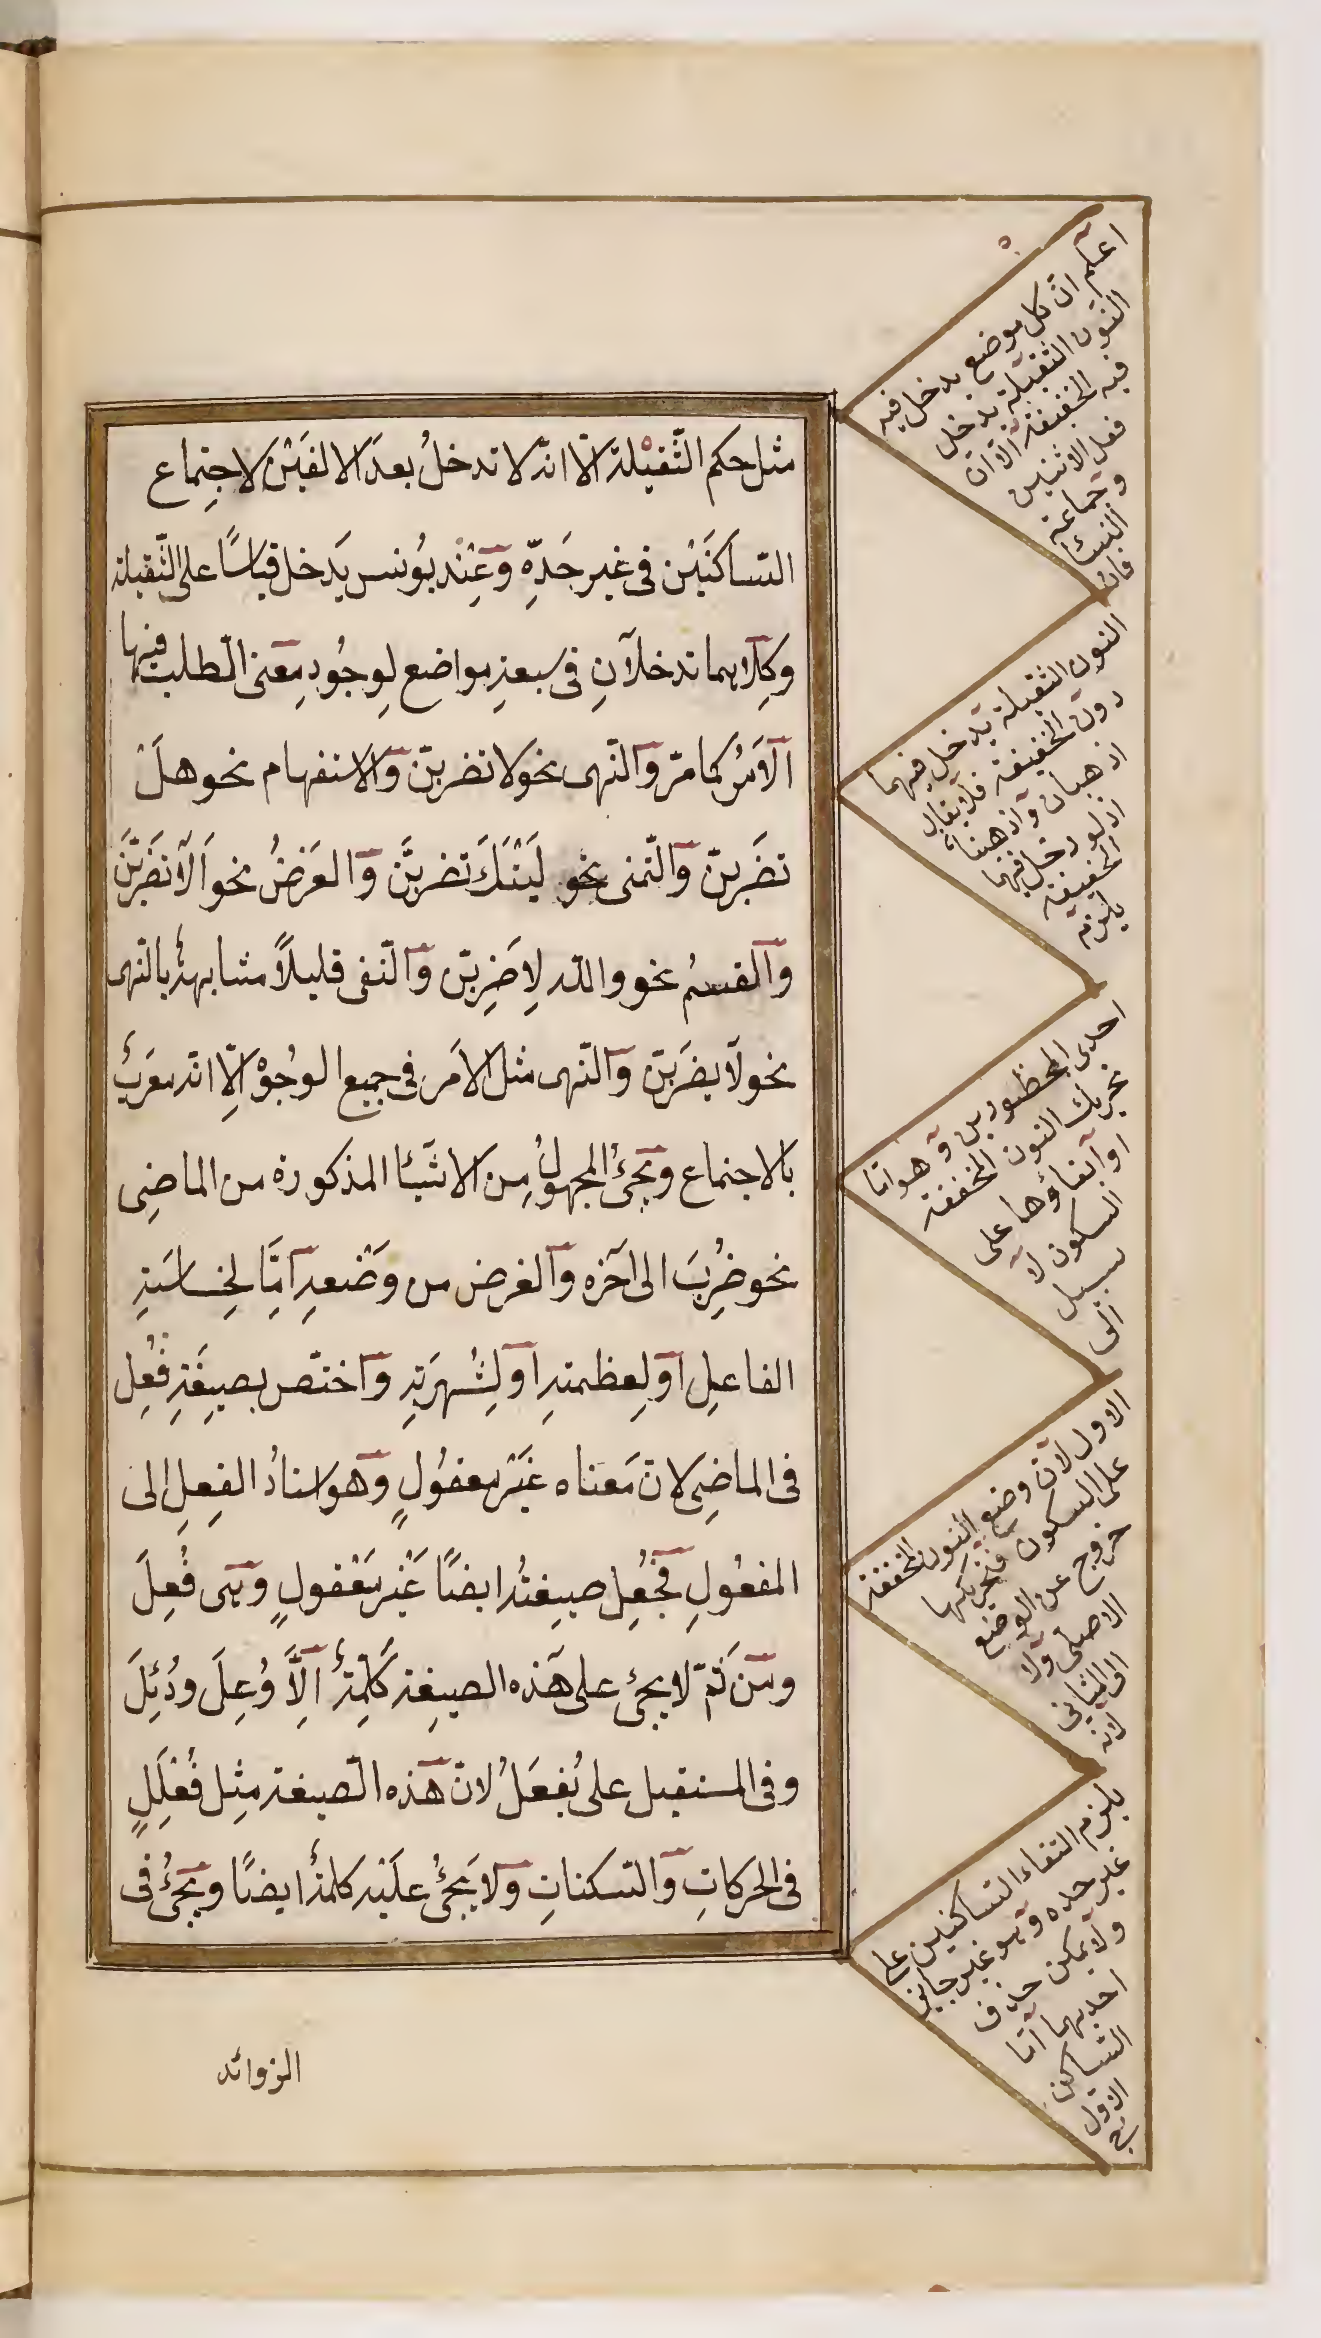 مثل حكم الثّقيلة الّا انّه لا تدخلُ بعدَ الالفَيْن لاجتماع
السّاكنَيْن فى غير حَدّهِ وعِنْد يُونس يَدخل قياسًا على الثّقيلة
وكِلاهما تدخلانِ فى سبعةِ مواضع لِوجُودِ مِعنى الطلب فيها
الاَمْرُ كما مرّ والنّهى نحو لا تضربنّ والاستفهام نحو هلَ
تضَربنّ والتّمنى نحو ليْتَكَ تضربنَّ والعَرضُ نحو اَلاَ تضَربَنَّ
والقسمُ نحو واللّه لِاَضرِبنّ والنّفى قليلاً مشابهةً بالنّهى
نحو لاَ يضَربَنّ والنّهى مثل الاَمَر فى جميع الوجُوْهِ اِلّا انّه معَربٌ
بالاجتماع ويَجىُٔ المجهولُ مِن الاشَئا المذكورة من الماضِى
نحو ضُرِبَ الى آخره والغرض من وَضْعهِ اِمَّا لِخساسَتةِ
الفاعِلِ اَو لِعظمتهِ اَو لِشُهرَتهِ واَختصّ بصيِغَةِ فُعِل
فى الماضِى لانّ مَعناه غَيْر معقُولٍ وهو اِسنادُ الفِعلِ اِلى
المفعُولِ فجُعِل صيِغتُه ايضًا غَيْر مَعْقولٍ وهى فُعِلَ
ومن ثَمّ لا يجىُٔ على هَذه الصيِغة كَلمِةٌ اِلاَّ وُعِلَ ودُئِلَ
وفى المستقبل على يُفعَلُ لانّ هَذه الصّيغة مِثِل فُعْلَلِلٍ
فى الحركاتِ والسّكناتِ ولا يَجىُٔ علَيْه كلمةٌ ايضًا ويَجىُٔ فى
الزوائد
اعلم انّ كل موضع يدخل فيه
النون الثقيلة يدخل
فيه الخفيفة الّا ان
فعل الاثنين
وجماعة
النساء
فان
النون الثقيلة يدخل فيهما
دون الخفيفة فلا يقال
اذهبان واذهبنان
اذ لو دخل فيهما
الخفيفة
يلزم
احدى المحظورين وهو امّا
تحريك النون الخففة
او ابقاؤها على
السكون لا
سبيل
الى
الاول لانّ وضع النون الخففة
على السكون فتحريكها
خروج عن الوضع
الاصلى ولا
الى الثانى
لانّه
يلزم التقاء الساكنين على
غير حده وهو غير جايز
ولا يمكن حذف
احديهما امّا
الساكن
الاوّل